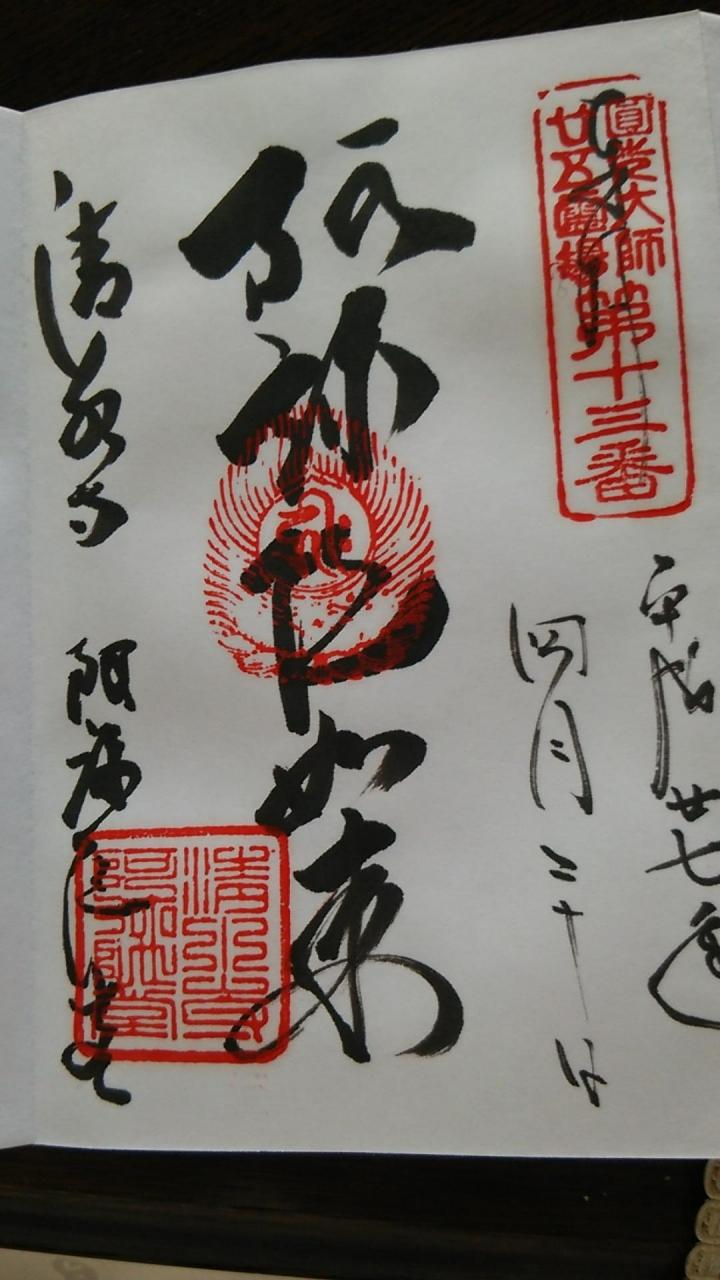 奉拝
圓光大師
廿五霊場
第十三番
平成廿七年
四月二十日
阿弥陀如来
清水寺
阿弥陀堂
清水寺
阿弥陀堂